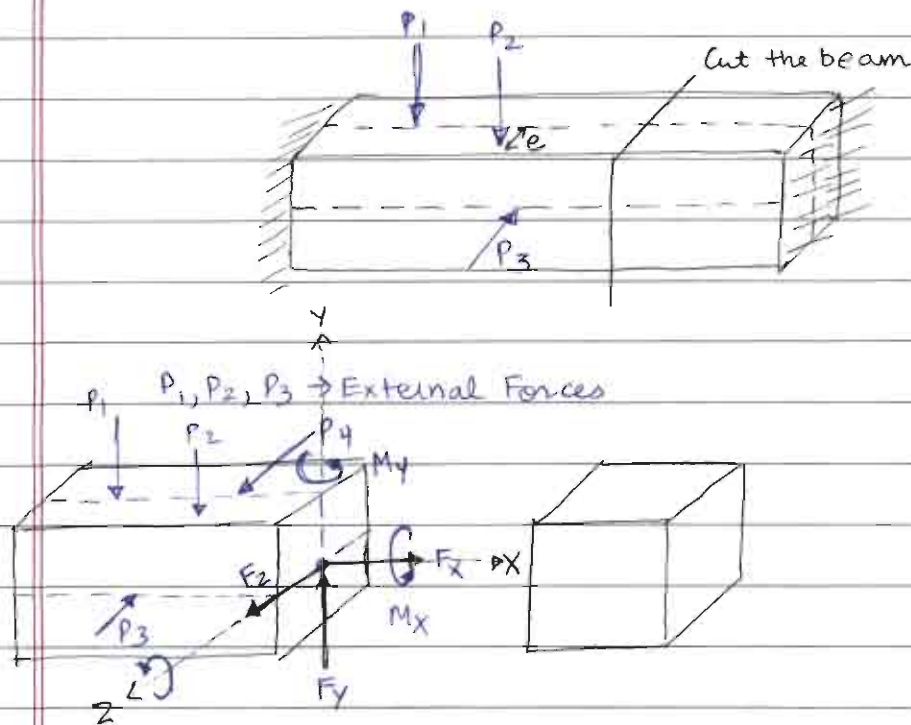 P1
P2
Cut the beam
e
P3
Y
P1, P2, P3 → External Forces
P1
P2
P4
My
Fz
Fx
X
Mx
P3
Fy
Z